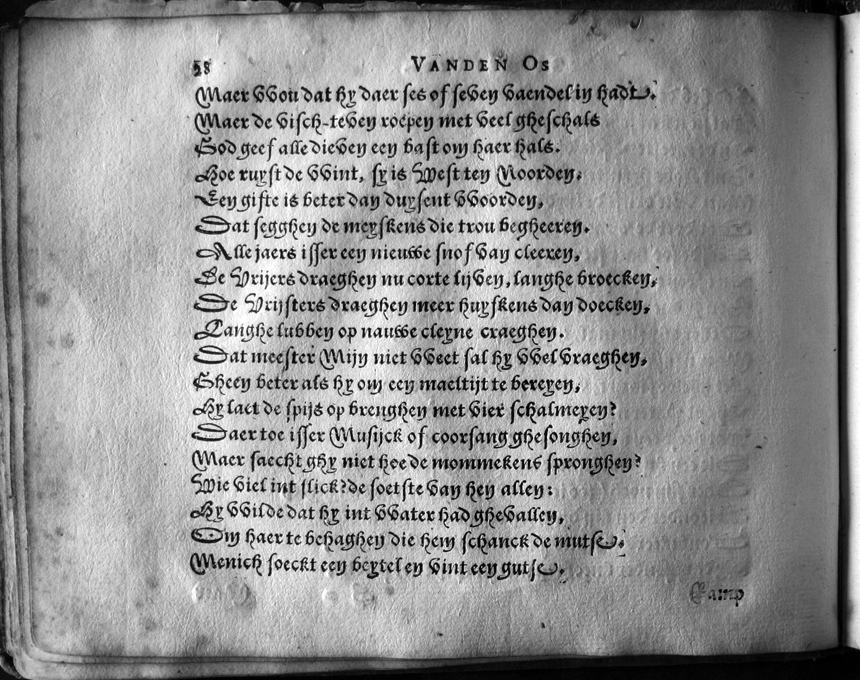 28 VANDEN OS
Maer VVou dat hy daer ses of seven vaendel in hadt.
Maer de visch-teven roepen met veel gheschals
God geef alle dieven een bast om haer hals.
Hoe ruyst de VVint, sy is West ten Noorden,
Een gifte is beter dan duysent VVoorden,
Dat segghen de meyskens die trou begheeren.
Alle jaers isser een nieuwe snof van cleeren,
De Vrijers draeghen nu corte lijven, langhe broecken,
De Vrijsters draeghen meer huyskens dan doecken,
Langhe lubben op nauwe cleyne craeghen.
Dat meester Mijn niet VVeet sal hy VVel vraeghen,
Gheen beter als hy om een maeltijt te bereyen,
Hy laet de spijs op brenghen met vier schalmeyen?
Daer toe isser Musijck of coorsang ghesonghen,
Maer saecht ghy niet hoe de mommekens spronghen?
Wie viel int slick? de soetste van hen allen:
Hy VVilde dat hy int VVater had ghevallen,
Om haer te behaghen die hem schanck de mutse.
Menich soeckt een beytel en vint een gutse.
Camp